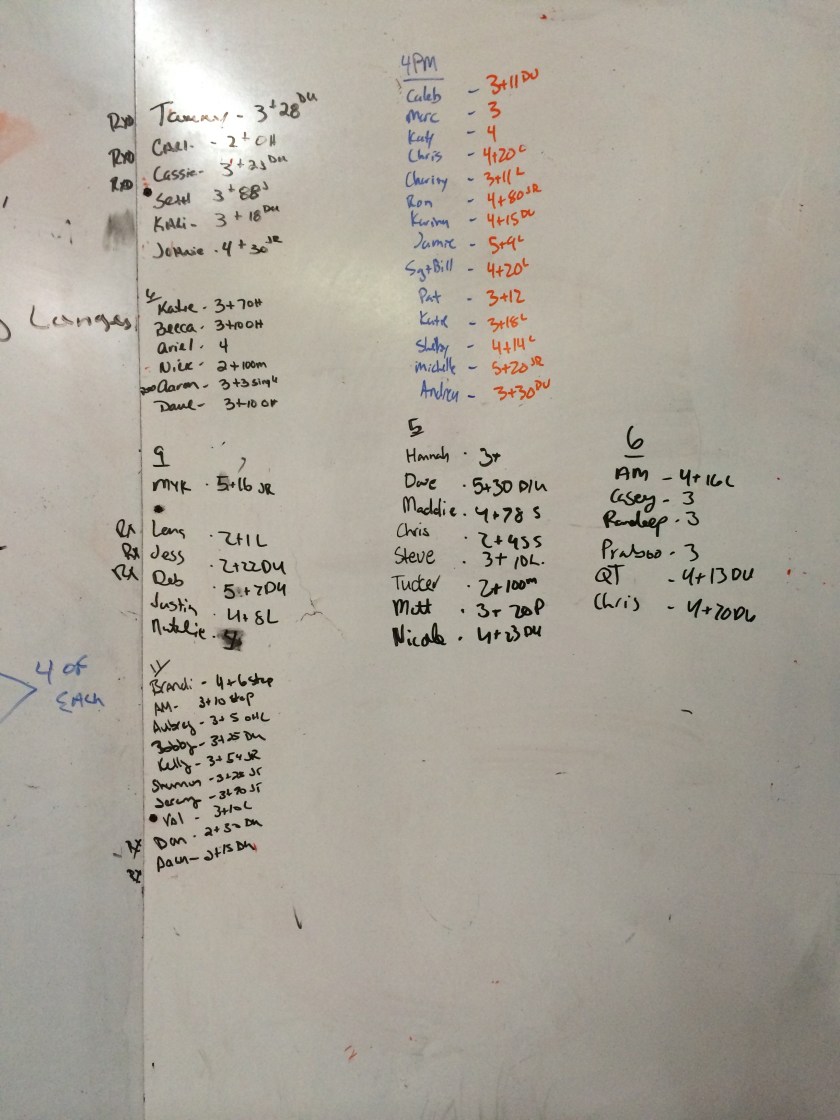 RXD Tammy - 3+28 DU
RXD CARI - 2+OH
RXD Cassie - 3+23 DU
Seth 3+88 S
KALi - 3+18 DU
Johnie - 4+30 JR
6
Katie - 3+7OH
Becca - 3+10OH
Ariel - 4
Nick - 2+100m
Aaron - 3+3 single
Dave - 3+10 OH
Lunges
9
MYK - 5+16 JR
Rx Lena - 2+1L
Rx Jess - 2+22DU
Rx Deb - 5+7DU
Justin - 4+8L
Natalie -
4 OF
EACH
11
Brandi - 4+6 step
AM - 3+10 step
Aubrey - 3+5 OHL
Bobby - 3+25 DU
Kelly - 3+54 JR
Shannon - 3+28 JR
Jeremy - 3+70 JR
Val - 3+10L
Rx Dan - 2+30 DU
Rx Dawn - 2+15 DU
4PM
Caleb - 3+11 DU
Marc - 3
Katy - 4
Chris - 4+20 L
Charity - 3+11 L
Ron - 4+80 JR
Karina - 4+15 DU
Jamie - 5+9 L
Sgt Bill - 4+20 L
Pat - 3+12
Katie - 3+18 L
Shelby - 4+14 L
michelle - 5+20 JR
Andrea - 3+30 DU
5
Hannah - 3+
Dave - 5+30 D/U
Maddie - 4+78 S
Chris - 2+45 S
Steve - 3+10L
Tucker - 2+100m
Matt - 3+20P
Nicole - 4+23 DU
6
AM - 4+16L
Casey - 3
Randeep - 3
Praboo - 3
QT - 4+13 DU
Chris - 4+20 DU